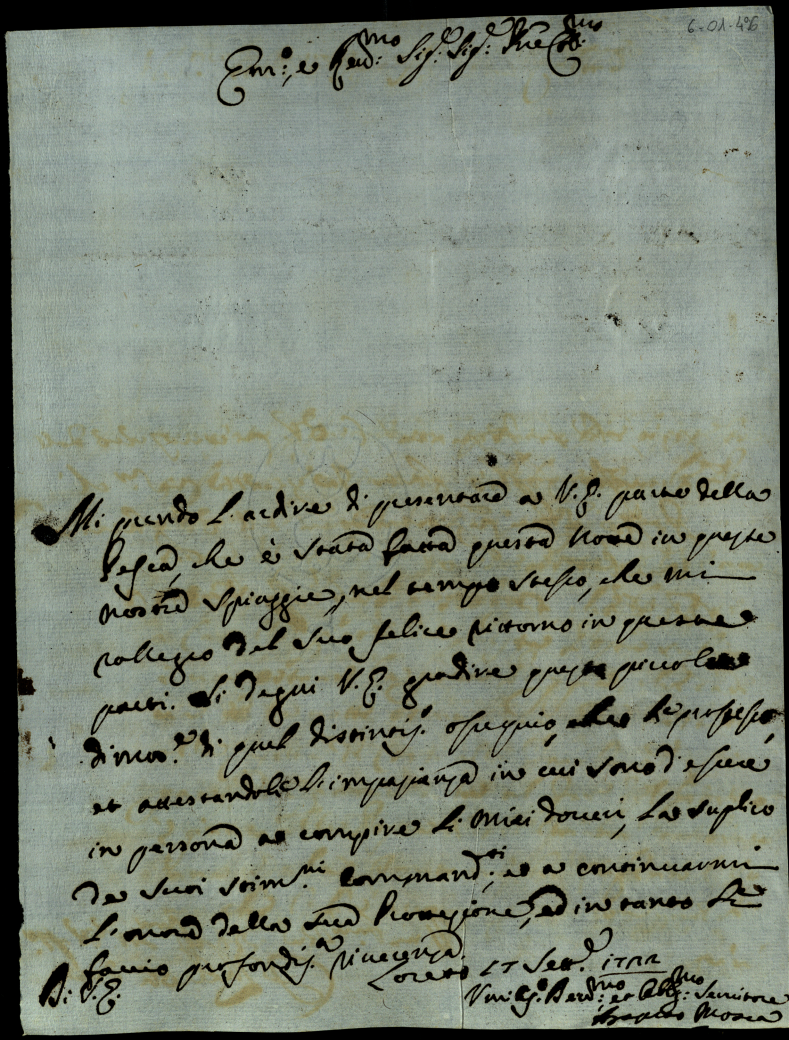 6-01-426
Em.o, e Rev.mo Sig.r Sig.r P̃ne Col.mo
Mi prendo l'ardire di presentare a V.E. parte della
Pesca, che è stata fatta questa notte in queste
nostre spiaggie, nel tempo stesso, che mi
rallegro del suo felice ritorno in queste
parti. Si degni V.E. gradire questa piccola
dimos.e di quel distintis.o ossequio, che le professo,
et attestandole l'impazienza in cui sono d'essere
in persona a compire li miei doveri, la suplico
de suoi stim.mi Command.ti, et a continuarmi
l'onore della sua Protezione, ed in tanto le
faccio profondis.a riverenza.
Di V.E.
Loreto 17 Sett.e
Umilis.o Dev.mo et Obl.mo Servitore
Mosca